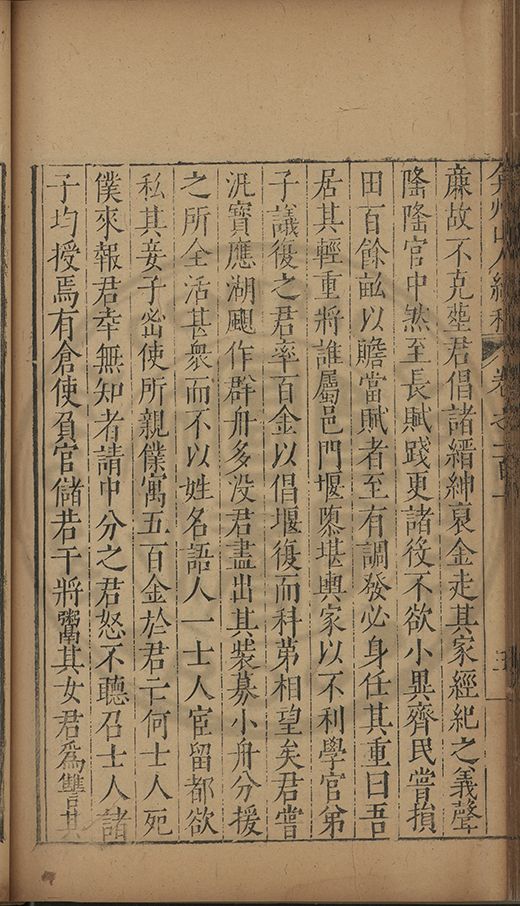 弇州山人續稿 卷之一百十 五
廉故不克塟君倡諸縉紳裒金走其家經紀之義聲
隆隆官中然至長賦踐更諸役不欲小異齊民嘗損
田百餘畝以贍當賦者至有調發必身任其重曰吾
居其輕重將誰屬邑門堰隳堪輿家以不利學官弟
子議復之君率百金以倡堰復而科第相望矣君嘗
汎寶應湖颶作群舟多没君盡出其装募小舟分援
之所全活甚衆而不以姓名語人一士人宦留都欲
私其妾子宻使所親僕寓五百金於君亡何士人死
僕來報君幸無知者請中分之君怒不聽召士人諸
子均授焉有倉使負官儲若干將鬻其女君爲讐其